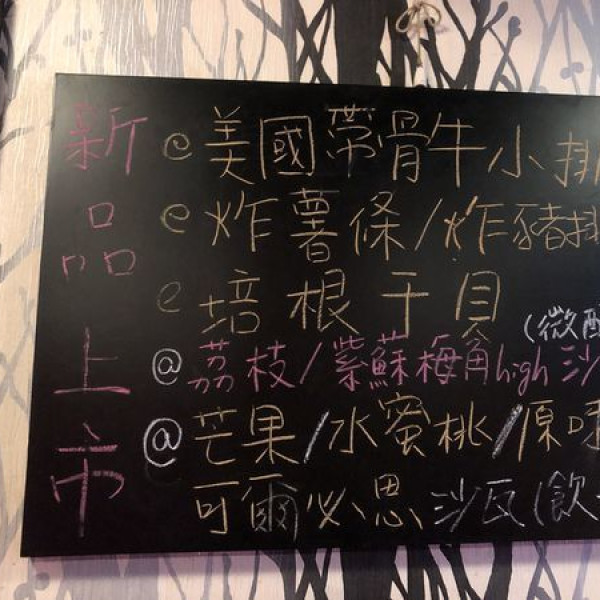 新品上市
@美國帶骨牛小排
@炸薯條/炸豬排
@培根干貝
(微醺
@荔枝/紫蘇梅角high沙
@芒果/水蜜桃/原味
可爾必思沙瓦(飲